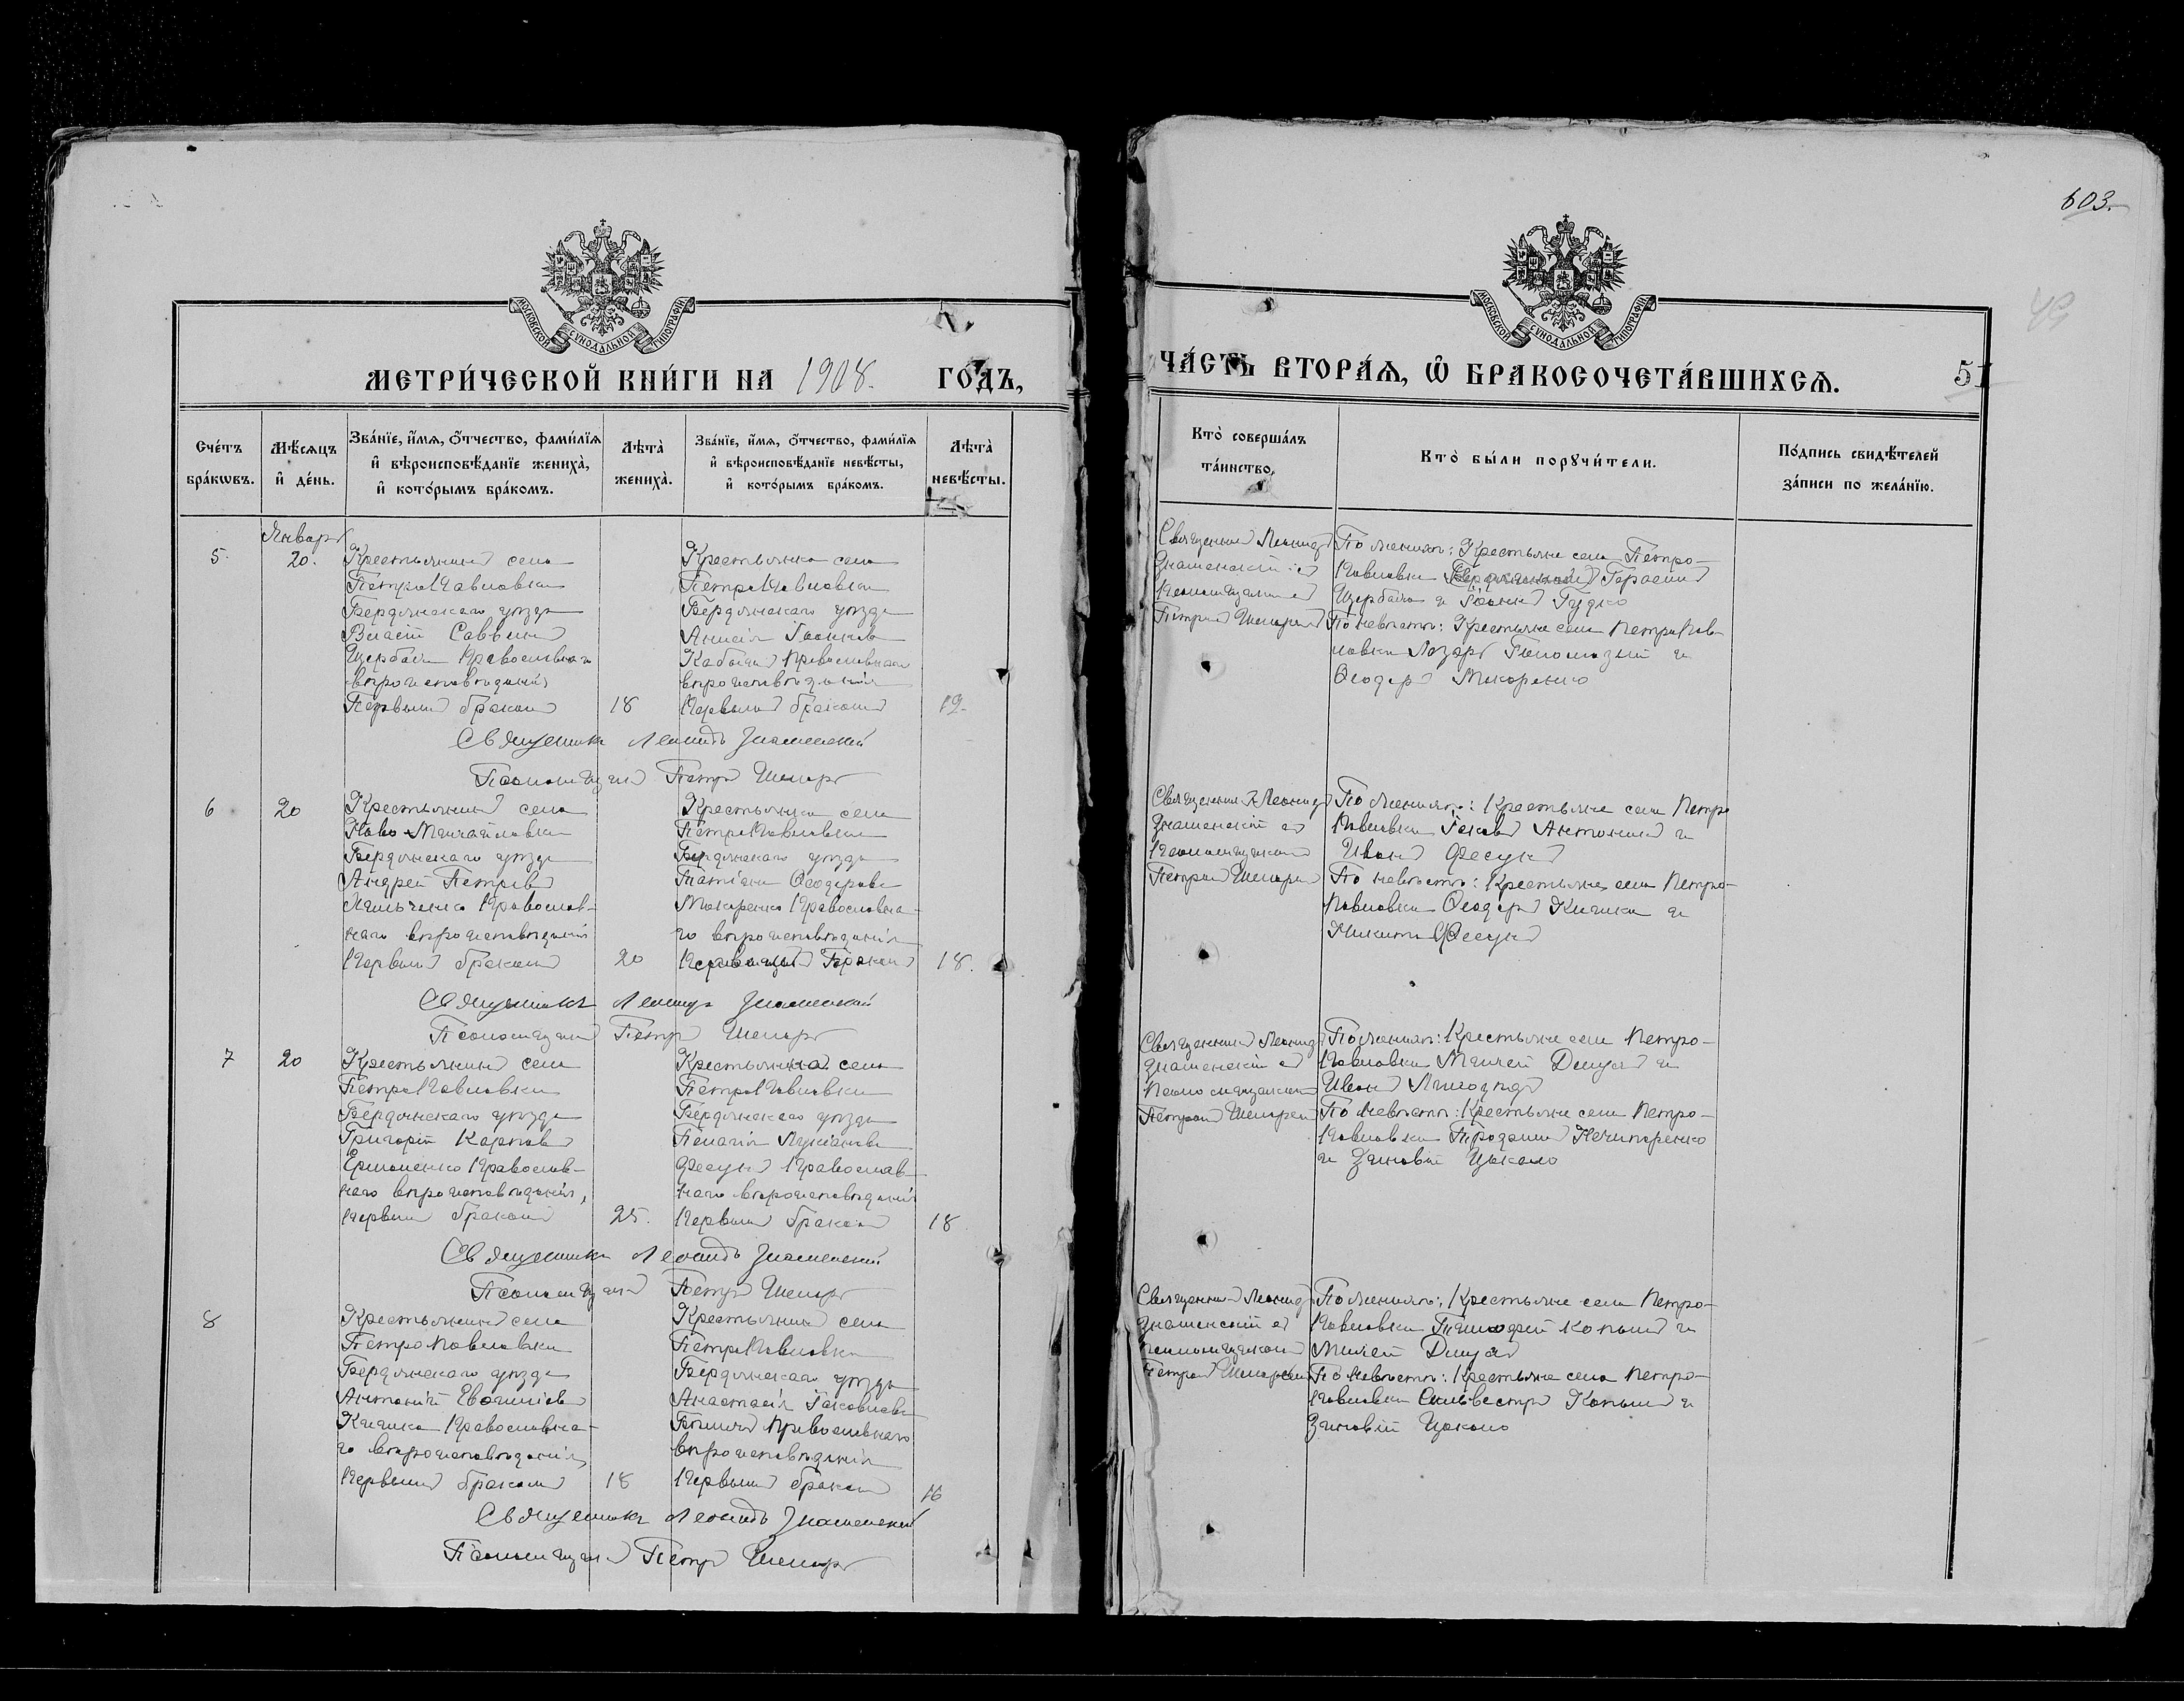 603.
МОСКОВСКОЙ СУНОДАЛЬНОЙ ТИПОГРАФІИ
МЕТРИ́ЧЕСКОЙ КНИ́ГИ НА 1908. ГО́ДЪ,
Сче́тъ бра́кѡвъ.
Мѣ́сяцъ и҆ де́нь.
Зва́нїе, и҆́мѧ, ѻ҆́тчество, фами́лїѧ
и҆ вѣроисповѣ́данїе жениха̀,
и҆ кото́рымъ бра́комъ.
Лѣта̀ жениха̀.
Зва́нїе, и҆́мѧ, ѻ҆́тчество, фами́лїѧ
и҆ вѣроисповѣ́данїе невѣ́сты,
и҆ кото́рымъ бра́комъ.
Лѣта̀ невѣ́сты.
Январь
5. 20.
Крестьянинъ села
Петропавловки
Бердянскаго уѣзда
Савинъ
Щербакъ Православнаго
вѣроисповѣданія
Первымъ бракомъ 18
Крестьянка села
Петропавловки
Бердянскаго уѣзда
Анисія Іоаннова
Православнаго
вѣроисповѣданія
Первымъ бракомъ 19.
Священникъ Леонидъ Знаменскій
Псаломщикъ Петръ
6 20
Крестьянинъ села
Ново-Михайловки
Бердянскаго уѣзда
Андрей Петровъ
Православ-
наго вѣроисповѣданія
Первымъ бракомъ 20
Крестьянка села
Петропавловки
Бердянскаго уѣзда
Татіана Ѳеодорова
Макаренко Православна-
го вѣроисповѣданія
Первымъ бракомъ 18.
Священникъ Леонидъ Знаменскій
Псаломщикъ Петръ
7 20
Крестьянинъ села
Петропавловки
Бердянскаго уѣзда
Григорій Карповъ
Ермоленко Православ-
наго вѣроисповѣданія,
Первымъ бракомъ 25.
Крестьянка села
Петропавловки
Бердянскаго уѣзда
Пелагія Лукіанова
Фесунъ Православ-
наго вѣроисповѣданія
Первымъ бракомъ 18
Священникъ Леонидъ Знаменскій
Псаломщикъ Петръ
8
Крестьянинъ села
Петропавловки
Бердянскаго уѣзда
Антоній Евфиміевъ
Кичико Православна-
го вѣроисповѣданія,
Первымъ бракомъ 18
Крестьянка села
Петропавловки
Бердянскаго уѣзда
Анастасія Іаковлева
Православнаго
вѣроисповѣданія
Первымъ бракомъ 16
Священникъ Леонидъ Знаменскій
Псаломщикъ Петръ
МОСКОВСКОЙ СУНОДАЛЬНОЙ ТИПОГРАФІИ
ЧА́СТЬ ВТОРА́Ѧ, Ѡ҆ БРАКОСОЧЕТА́ВШИХСѦ. 51
Кто̀ соверша́лъ
та́инство.
Кто̀ бы́ли порꙋчи́тели.
По́дпись свидѣ́телей
за́писи по жела́нїю.
Священникъ Леонидъ
Знаменскій съ
псаломщикомъ
Петромъ
По женихѣ: Крестьяне села Петро-
павловки Герасимъ
Щербакъ и Іоаннъ Гудко
По невѣстѣ: Крестьяне села Петропав-
ловки Лазарь и
Ѳеодоръ Макаренко
Священникъ Леонидъ
Знаменскій съ
псаломщикомъ
Петромъ
По женихѣ: Крестьяне села Петро
павловки Іаковъ Антонинъ и
Иванъ Фесунъ
По невѣстѣ: Крестьяне села Петро-
павловки Ѳеодоръ Кичико и
Никита Фесунъ
Священникъ Леонидъ
Знаменскій съ
псаломщикомъ
Петромъ
По женихѣ: Крестьяне села Петро-
павловки и
Иванъ
По невѣстѣ: Крестьяне села Петро-
павловки Нечипоренко
и Зиновій Цокало
Священникъ Леонидъ
Знаменскій съ
псаломщикомъ
Петромъ
По женихѣ: Крестьяне села Петро-
павловки Тимофей и
По невѣстѣ: Крестьяне села Петро-
павловки Сильвестръ и
Зиновій Цокало